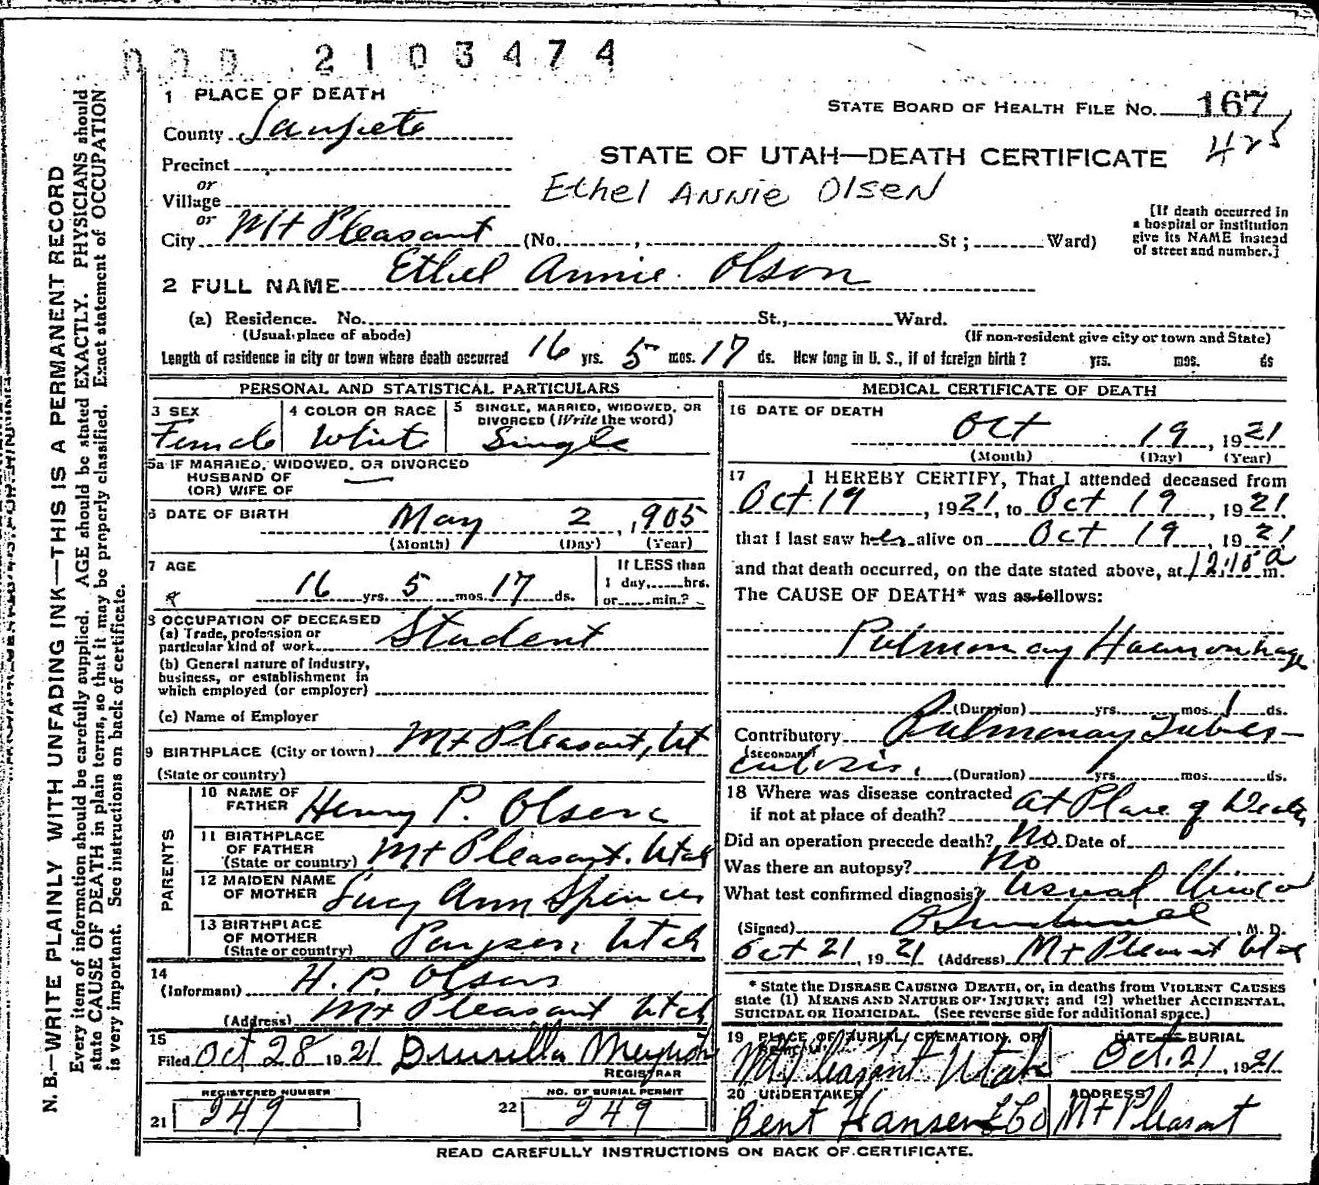 000 2103474
1 PLACE OF DEATH
STATE BOARD OF HEALTH FILE NO. 167
County Sanpete
425
STATE OF UTAH—DEATH CERTIFICATE
Precinct
or
Village
Ethel Annie Olsen
or
City Mt Pleasant (No. , St; Ward)
[If death occurred in
a hospital or institution
give its NAME instead
of street and number.]
2 FULL NAME Ethel Annie Olson
(a) Residence. No. St., Ward.
(Usual place of abode) (If non-resident give city or town and State)
Length of residence in city or town where death occurred 16 yrs. 5 mos. 17 ds. How long in U. S., if of foreign birth? yrs. mos. ds
PERSONAL AND STATISTICAL PARTICULARS
3 SEX
Female
4 COLOR OR RACE
White
5 SINGLE, MARRIED, WIDOWED, OR
DIVORCED (Write the word)
Single
5a IF MARRIED, WIDOWED, OR DIVORCED
HUSBAND OF
(OR) WIFE OF
6 DATE OF BIRTH
May 2, 1905
(Month) (Day) (Year)
7 AGE
16 yrs. 5 mos. 17 ds.
If LESS than
1 day, hrs.
or min.?
8 OCCUPATION OF DECEASED
(a) Trade, profession or
particular kind of work Student
(b) General nature of industry,
business, or establishment in
which employed (or employer)
(c) Name of Employer
9 BIRTHPLACE (City or town) Mt Pleasant, Ut
(State or country)
PARENTS
10 NAME OF
FATHER Henry P. Olsen
11 BIRTHPLACE
OF FATHER
(State or country) Mt Pleasant. Utah
12 MAIDEN NAME
OF MOTHER Lucy Ann Spencer
13 BIRTHPLACE
OF MOTHER
(State or country) Payson Utah
14
(Informant) H. P. Olsen
(Address) Mt Pleasant Utah
15
Filed Oct 28 1921 Drusilla
REGISTRAR
REGISTERED NUMBER
21 249
NO. OF BURIAL PERMIT
22 249
MEDICAL CERTIFICATE OF DEATH
16 DATE OF DEATH
Oct 19, 1921
(Month) (Day) (Year)
17 I HEREBY CERTIFY, That I attended deceased from
Oct 19, 1921, to Oct 19, 1921
that I last saw her alive on Oct 19, 1921
and that death occurred, on the date stated above, at 12:15 a m.
The CAUSE OF DEATH* was as follows:
Pulmonary Haemorrhage
(Duration) yrs. mos. 1 ds.
Contributory Pulmonary Tuber-
(SECONDARY)
culosis. (Duration) yrs. mos. ds.
18 Where was disease contracted
if not at place of death? at Place of Death
Did an operation precede death? No. Date of
Was there an autopsy? No
What test confirmed diagnosis? Usual
(Signed) M. D.
Oct 21, 1921 (Address) Mt Pleasant Utah
* State the DISEASE CAUSING DEATH, or, in deaths from VIOLENT CAUSES
state (1) MEANS AND NATURE OF INJURY; and (2) whether ACCIDENTAL,
SUICIDAL OR HOMICIDAL. (See reverse side for additional space.)
19 PLACE OF BURIAL, CREMATION, OR
REMOVAL
Mt Pleasant Utah
DATE OF BURIAL
Oct. 21, 1921
20 UNDERTAKER
Bent Hansen & Co
ADDRESS
Mt Pleasant
READ CAREFULLY INSTRUCTIONS ON BACK OF CERTIFICATE.
N. B.—WRITE PLAINLY WITH UNFADING INK—THIS IS A PERMANENT RECORD
Every item of information should be carefully supplied. AGE should be stated EXACTLY. PHYSICIANS should
state CAUSE OF DEATH in plain terms, so that it may be properly classified. Exact statement of OCCUPATION
is very important. See instructions on back of certificate.